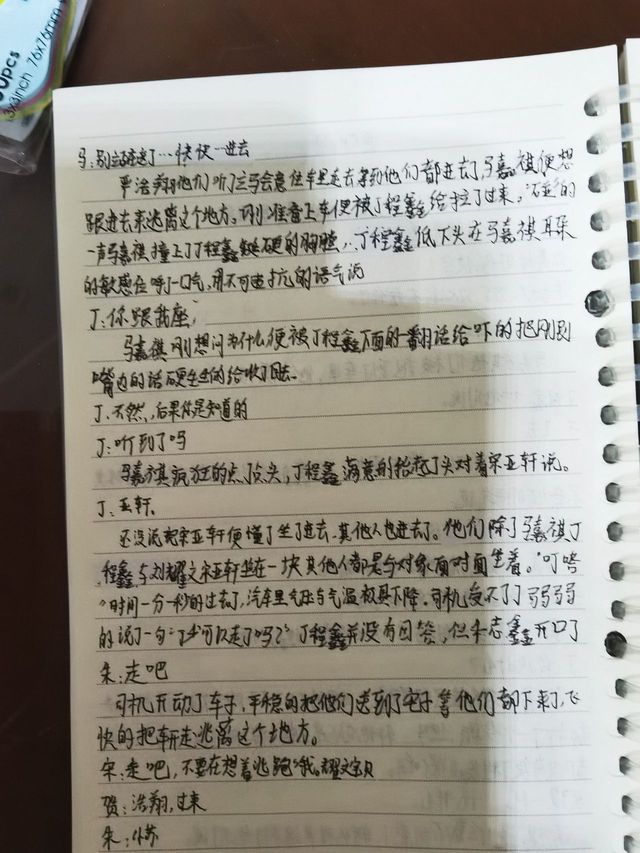 00pcs
3x3inch 76x76mm
马:别站在这了…快快进去
严浩翔他们听了立马会意往车里走去等到他们都进去了,马嘉祺便想
跟进去来逃离这个地方。刚准备上车便被丁程鑫给拉了过来,"碰"的
一声马嘉祺撞上了丁程鑫坚硬的胸膛,丁程鑫低下头在马嘉祺耳朵
的敏感位呼了一口气,用不可违抗的语气说
丁:你跟我座,
马嘉祺刚想问为什么便被丁程鑫下面的一翻话给吓的把刚到
嘴边的话硬生生的给收了回去.
丁:不然,后果你是知道的
丁:听到了吗
马嘉祺疯狂的点了点头,丁程鑫满意的抬起了头对着宋亚轩说。
丁:亚轩,
还没说完宋亚轩便懂了坐了进去.其他人也进去了。他们除了马嘉祺丁
程鑫与刘耀文宋亚轩坐在一块其他人都是与对象面对面坐着。"叮嗒
"时间一分一秒的过去了,汽车里气压与气温极具下降.司机受不了了弱弱弱
的说了一句:"少可以走了吗?"丁程鑫并没有回答,但朱志鑫开口了
朱:走吧
司机开动了车子.平稳的把他们送到了宅子等他们都下来了,飞
快的把车开走逃离这个地方。
宋:走吧,不要在想着逃跑哦。耀文宝贝
贺:浩翔,过来
朱:小苏